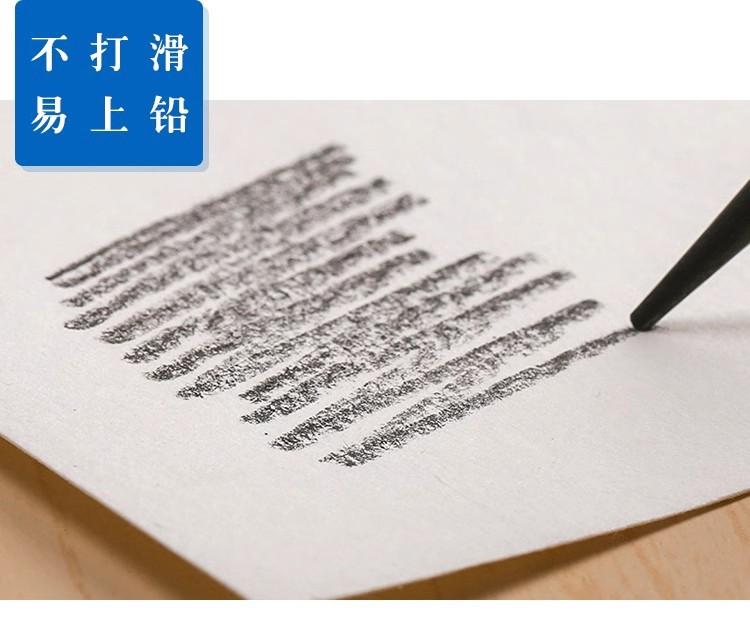 不打滑
易上铅